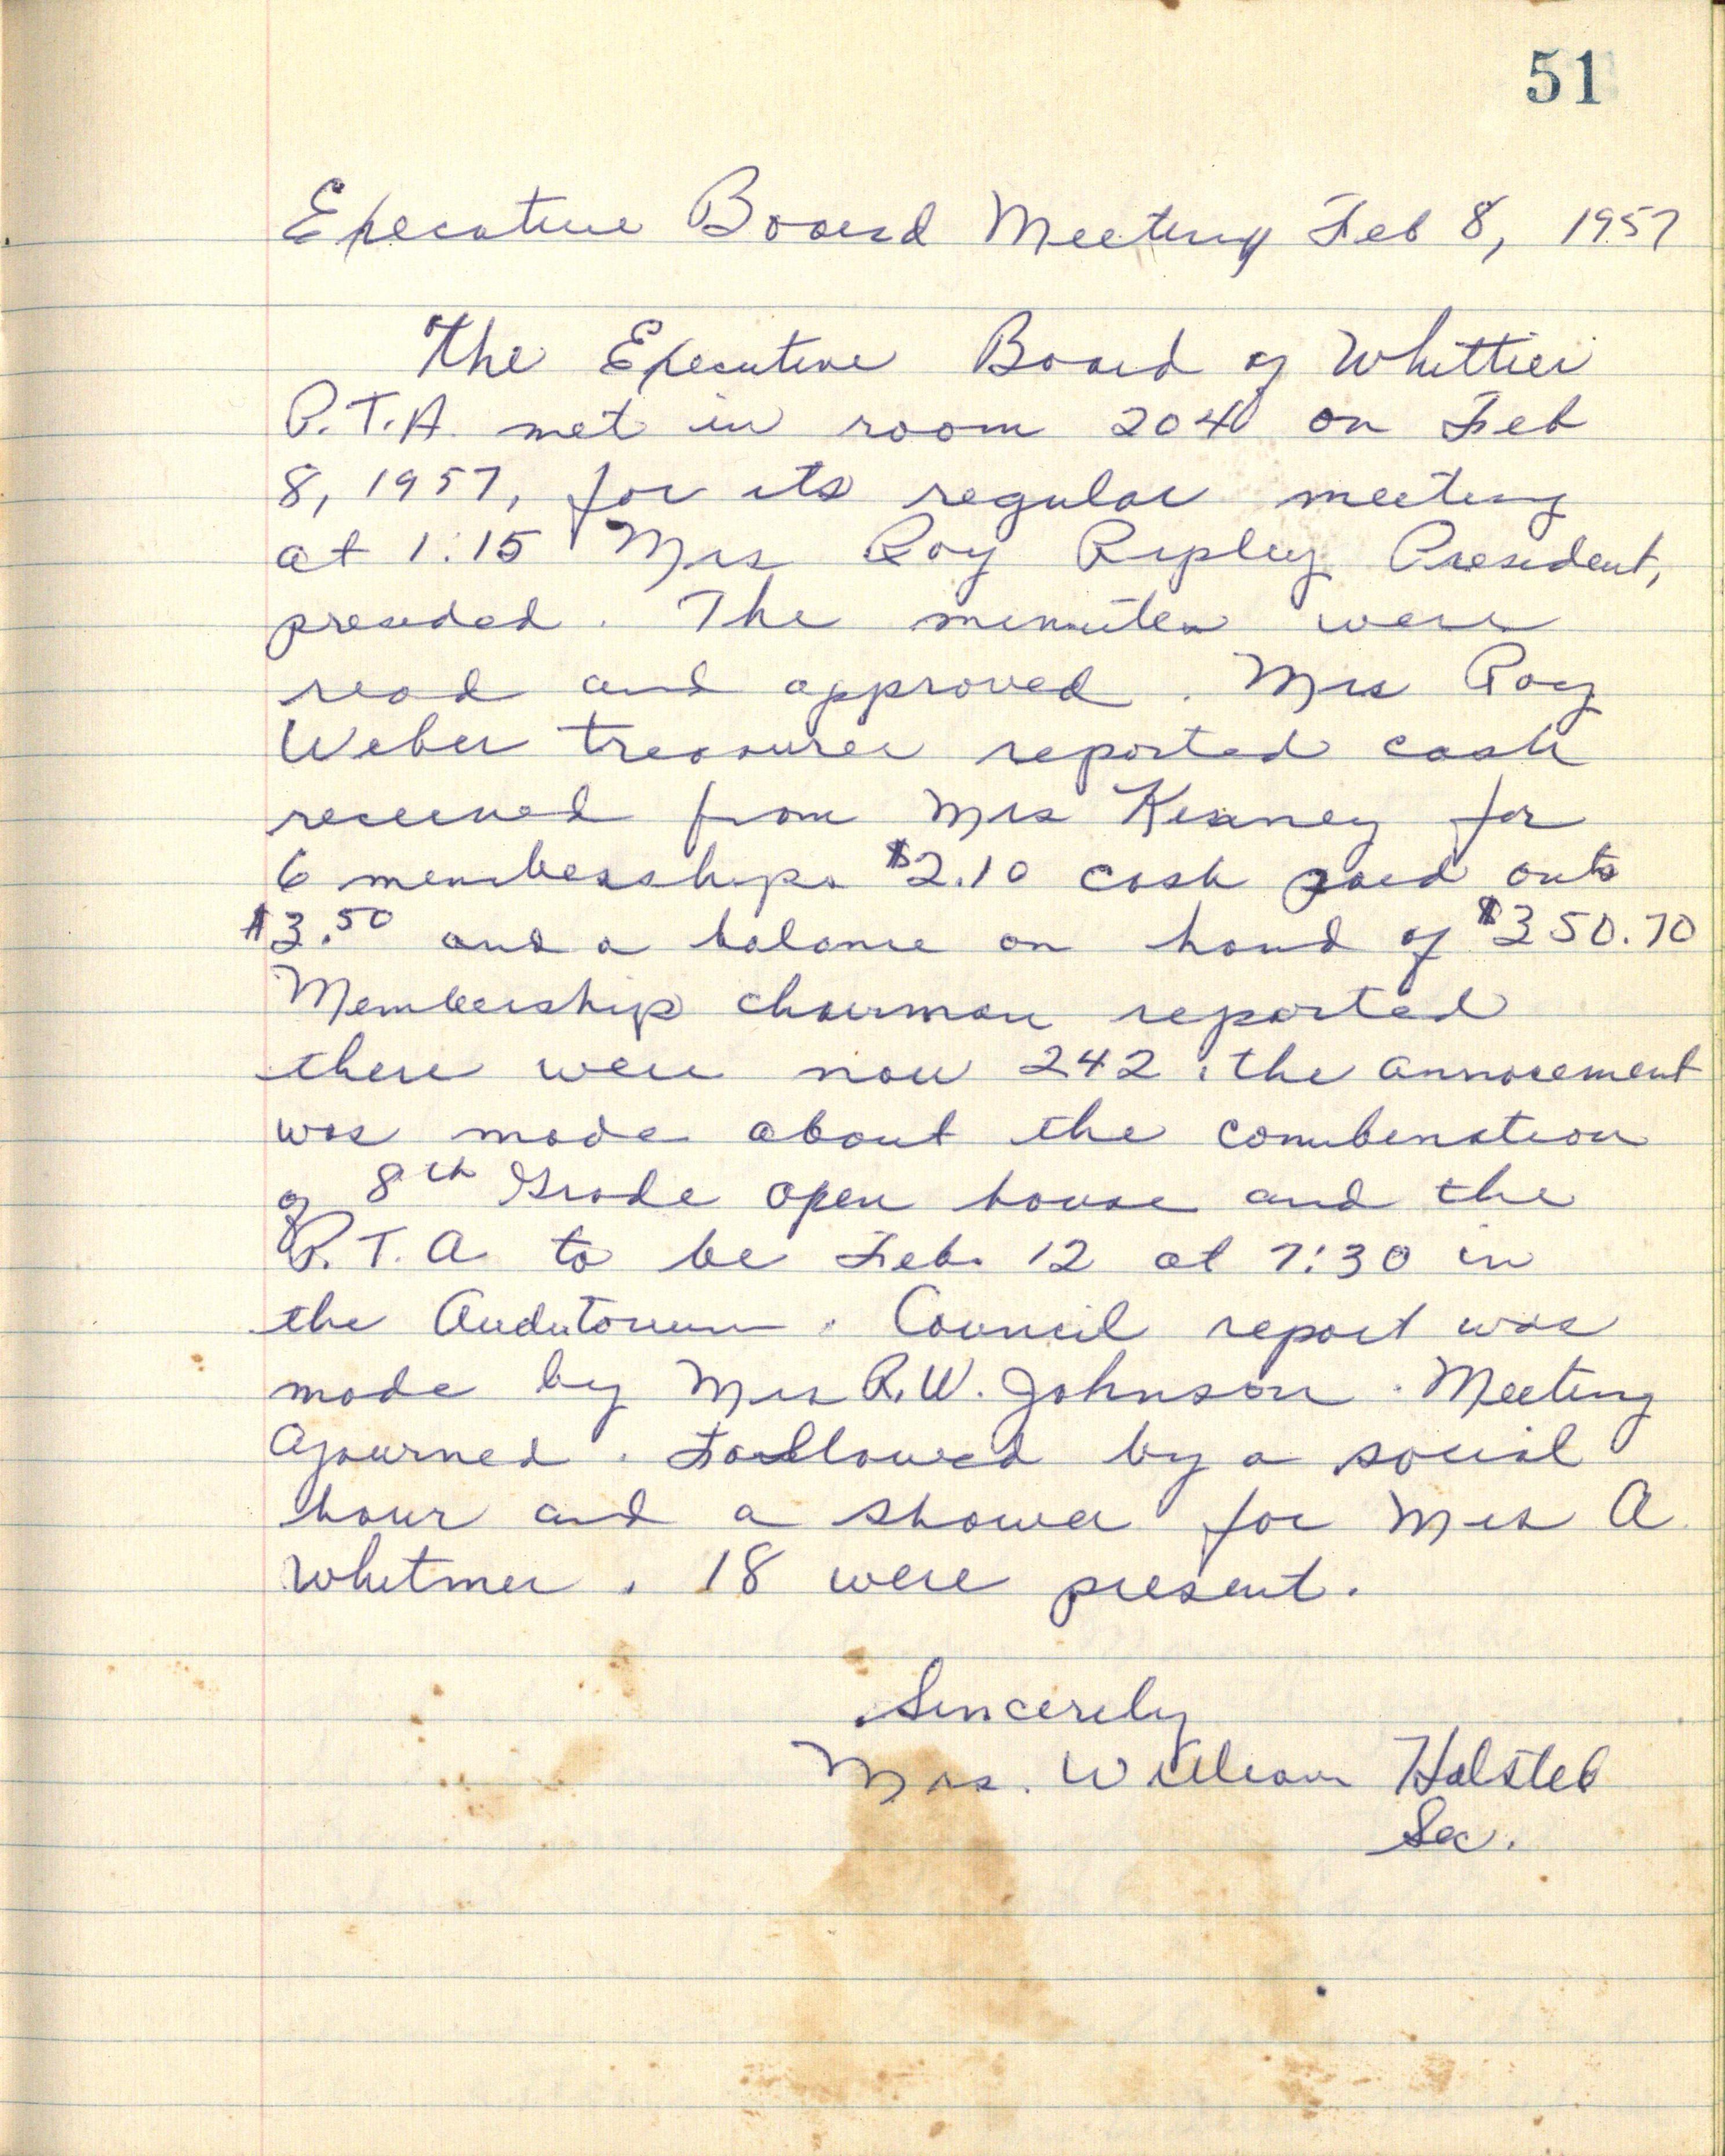 51
Executive Board Meeting Feb 8, 1957
The Executive Board of Whittier
P.T.A. met in room 204 on Feb
8, 1957, for its regular meeting
at 1:15 Mrs Roy Ripley President,
presided. The minutes were
read and approved. Mrs Roy
Weber treasurer reported cash
received from Mrs Kinney for
6 memberships $2.10 cash paid out
$3.50 and a balance on hand of $350.70
Membership chairman reported
there were now 242. the annocement
was made about the combination
of 8th Grade open house and the
P.T.A to be Feb. 12 at 7:30 in
the Auditorium. Council report was
made by Mrs R.W. Johnson. Meeting
ajourned. Followed by a social
hour and a shower for Mrs A
Whitmer. 18 were present.
Sincerely
Mrs. William Halsted
Sec.